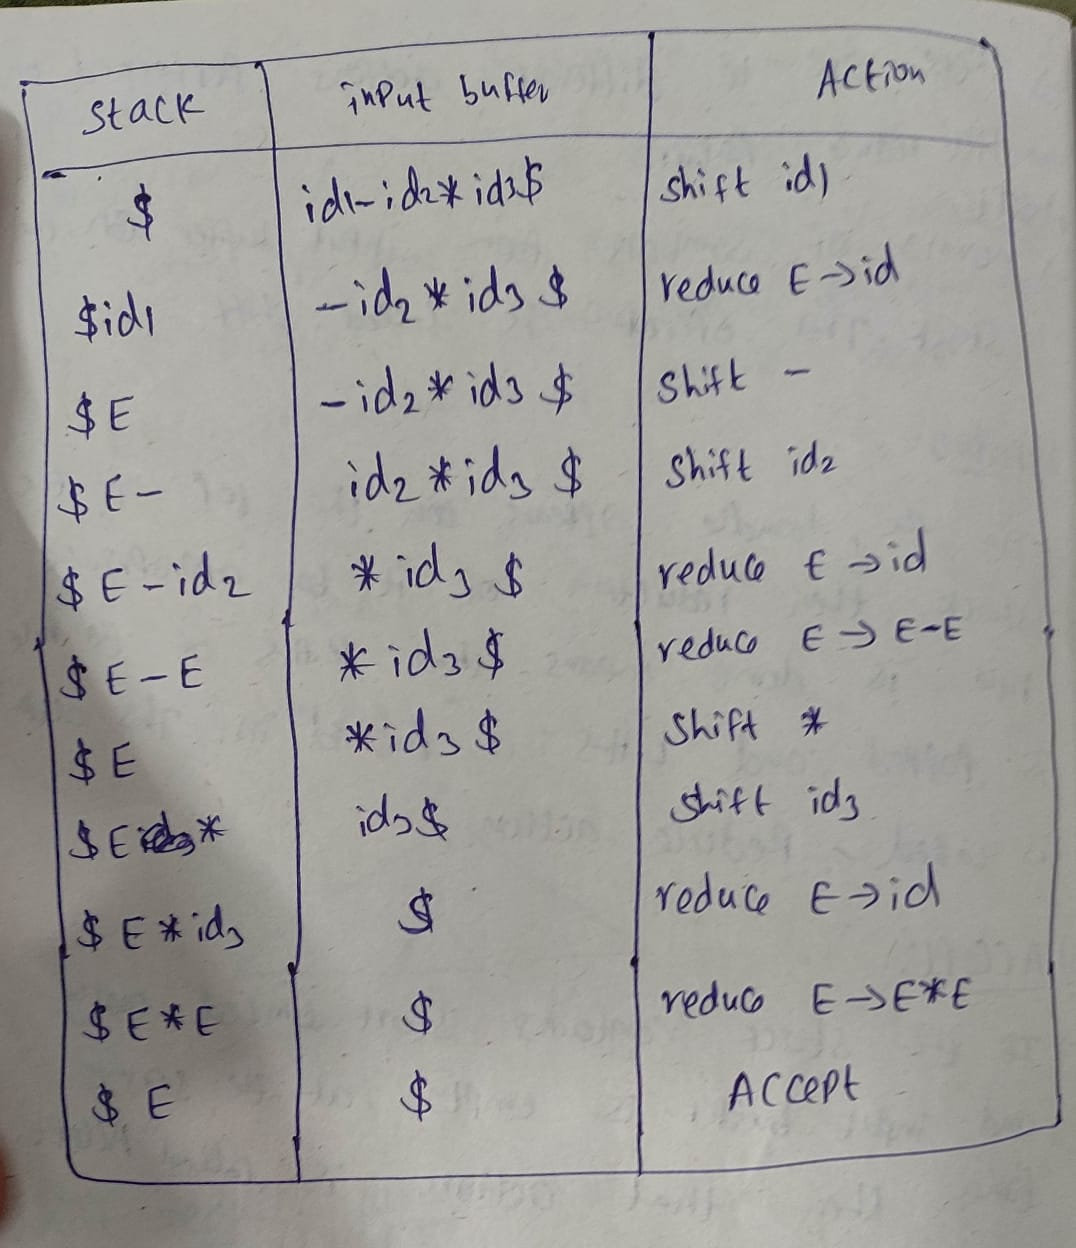 Stack input buffer Action
$ id1-id2*id3$ shift id1
$id1 -id2*id3$ reduce E→id
$E -id2*id3$ shift -
$E- id2*id3$ shift id2
$E-id2 *id3$ reduce E→id
$E-E *id3$ reduce E→E-E
$E *id3$ shift *
$E* id3$ shift id3
$E*id3 $ reduce E→id
$E*E $ reduce E→E*E
$E $ Accept